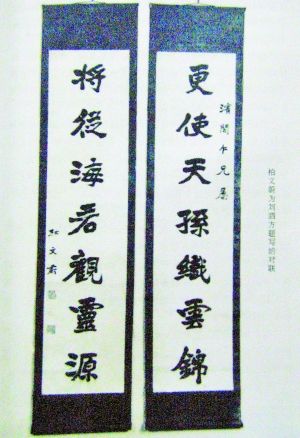 更使天孫織雲錦
濱閣仁兄屬
将從海若觀靈源
柏文蔚
柏文蔚为刘西方题写的对联